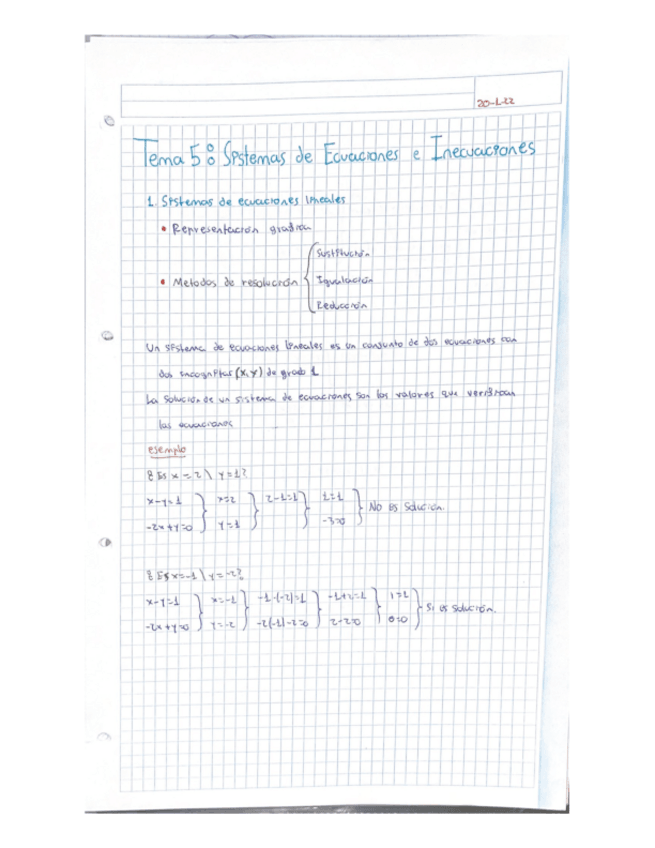 20-1-22
Tema 5: Sistemas de Ecuaciones e Inecuaciones
1. Sistemas de ecuaciones lineales
• Representación grafica
• Metodos de resolución { Sustitución
Igualación
Reducción
Un sistema de ecuaciones lineales es un conjunto de dos ecuaciones con
dos incognitas (x,y) de grado 1
La solución de un sistema de ecuaciones son los valores que verifican
las ecuaciones
ejemplo
¿Es x=2 \ y=1?
x-y=1 } x=2 } 2-1=1 } 1=1 } No es solución.
-2x+y=0 } y=1 } -3=0
¿Es x=-1 \ y=-2?
x-y=1 } x=-1 } -1-(-2)=1 } -1+2=1 } 1=1 } Si es solución.
-2x+y=0 } y=-2 } -2(-1)-2=0 } 2-2=0 } 0=0